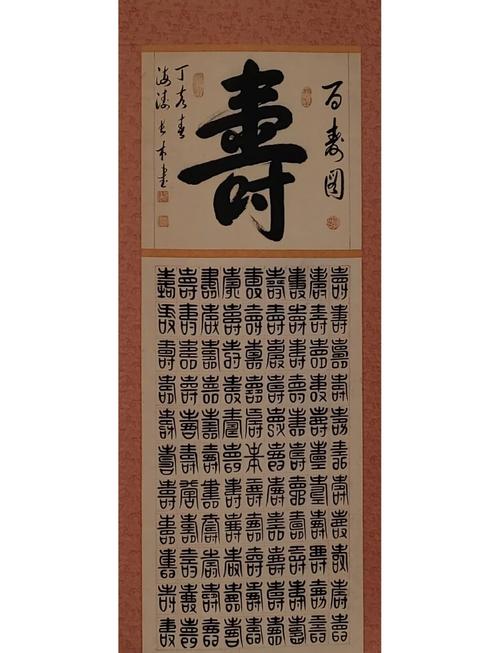 百寿图
壽
丁亥春
壽壽壽壽壽壽壽壽壽壽壽
壽壽壽壽壽壽壽壽壽壽壽
壽壽壽壽壽壽壽壽壽壽壽
壽壽壽壽壽壽壽壽壽壽壽
壽壽壽壽壽壽壽壽壽壽壽
壽壽壽壽壽壽壽壽壽壽壽
壽壽壽壽壽壽壽壽壽壽壽
壽壽壽壽壽壽壽壽壽壽壽
壽壽壽壽壽壽壽壽壽壽壽